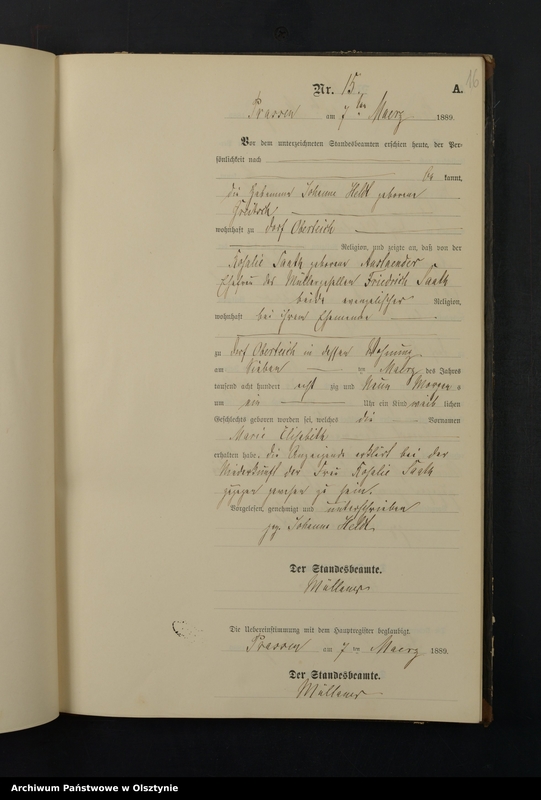 16
Nr. 15. A.
Prassen am 7ten Maerz 1889.
Vor dem unterzeichneten Standesbeamten erschien heute, der Per-
sönlichkeit nach
be kannt,
die Hebamme Johanne Heldt geborene
wohnhaft zu Dorf Oberteich
Religion, und zeigte an, daß von der
Rosalie Saath geborene Auslaender
Ehefrau des Müllergesellen Friedrich Saath
beide evangelischer Religion,
wohnhaft bei ihrem Ehemanne
zu Dorf Oberteich in dessen Wohnung
am Sieben ten Maerz des Jahres
tausend acht hundert acht zig und Neun Morgens
um ein Uhr ein Kind weib lichen
Geschlechts geboren worden sei, welches die Vornamen
Marie Elisabeth
erhalten habe. die Anzeigende erklärt bei der
Niederkunft der Frau Rosalie Saath
zugegen gewesen zu sein.
Vorgelesen, genehmigt und unterschrieben
gez. Johanne Heldt
Der Standesbeamte.
Die Uebereinstimmung mit dem Hauptregister beglaubigt.
Prassen am 7ten Maerz 1889.
Der Standesbeamte.
Archiwum Państwowe w Olsztynie